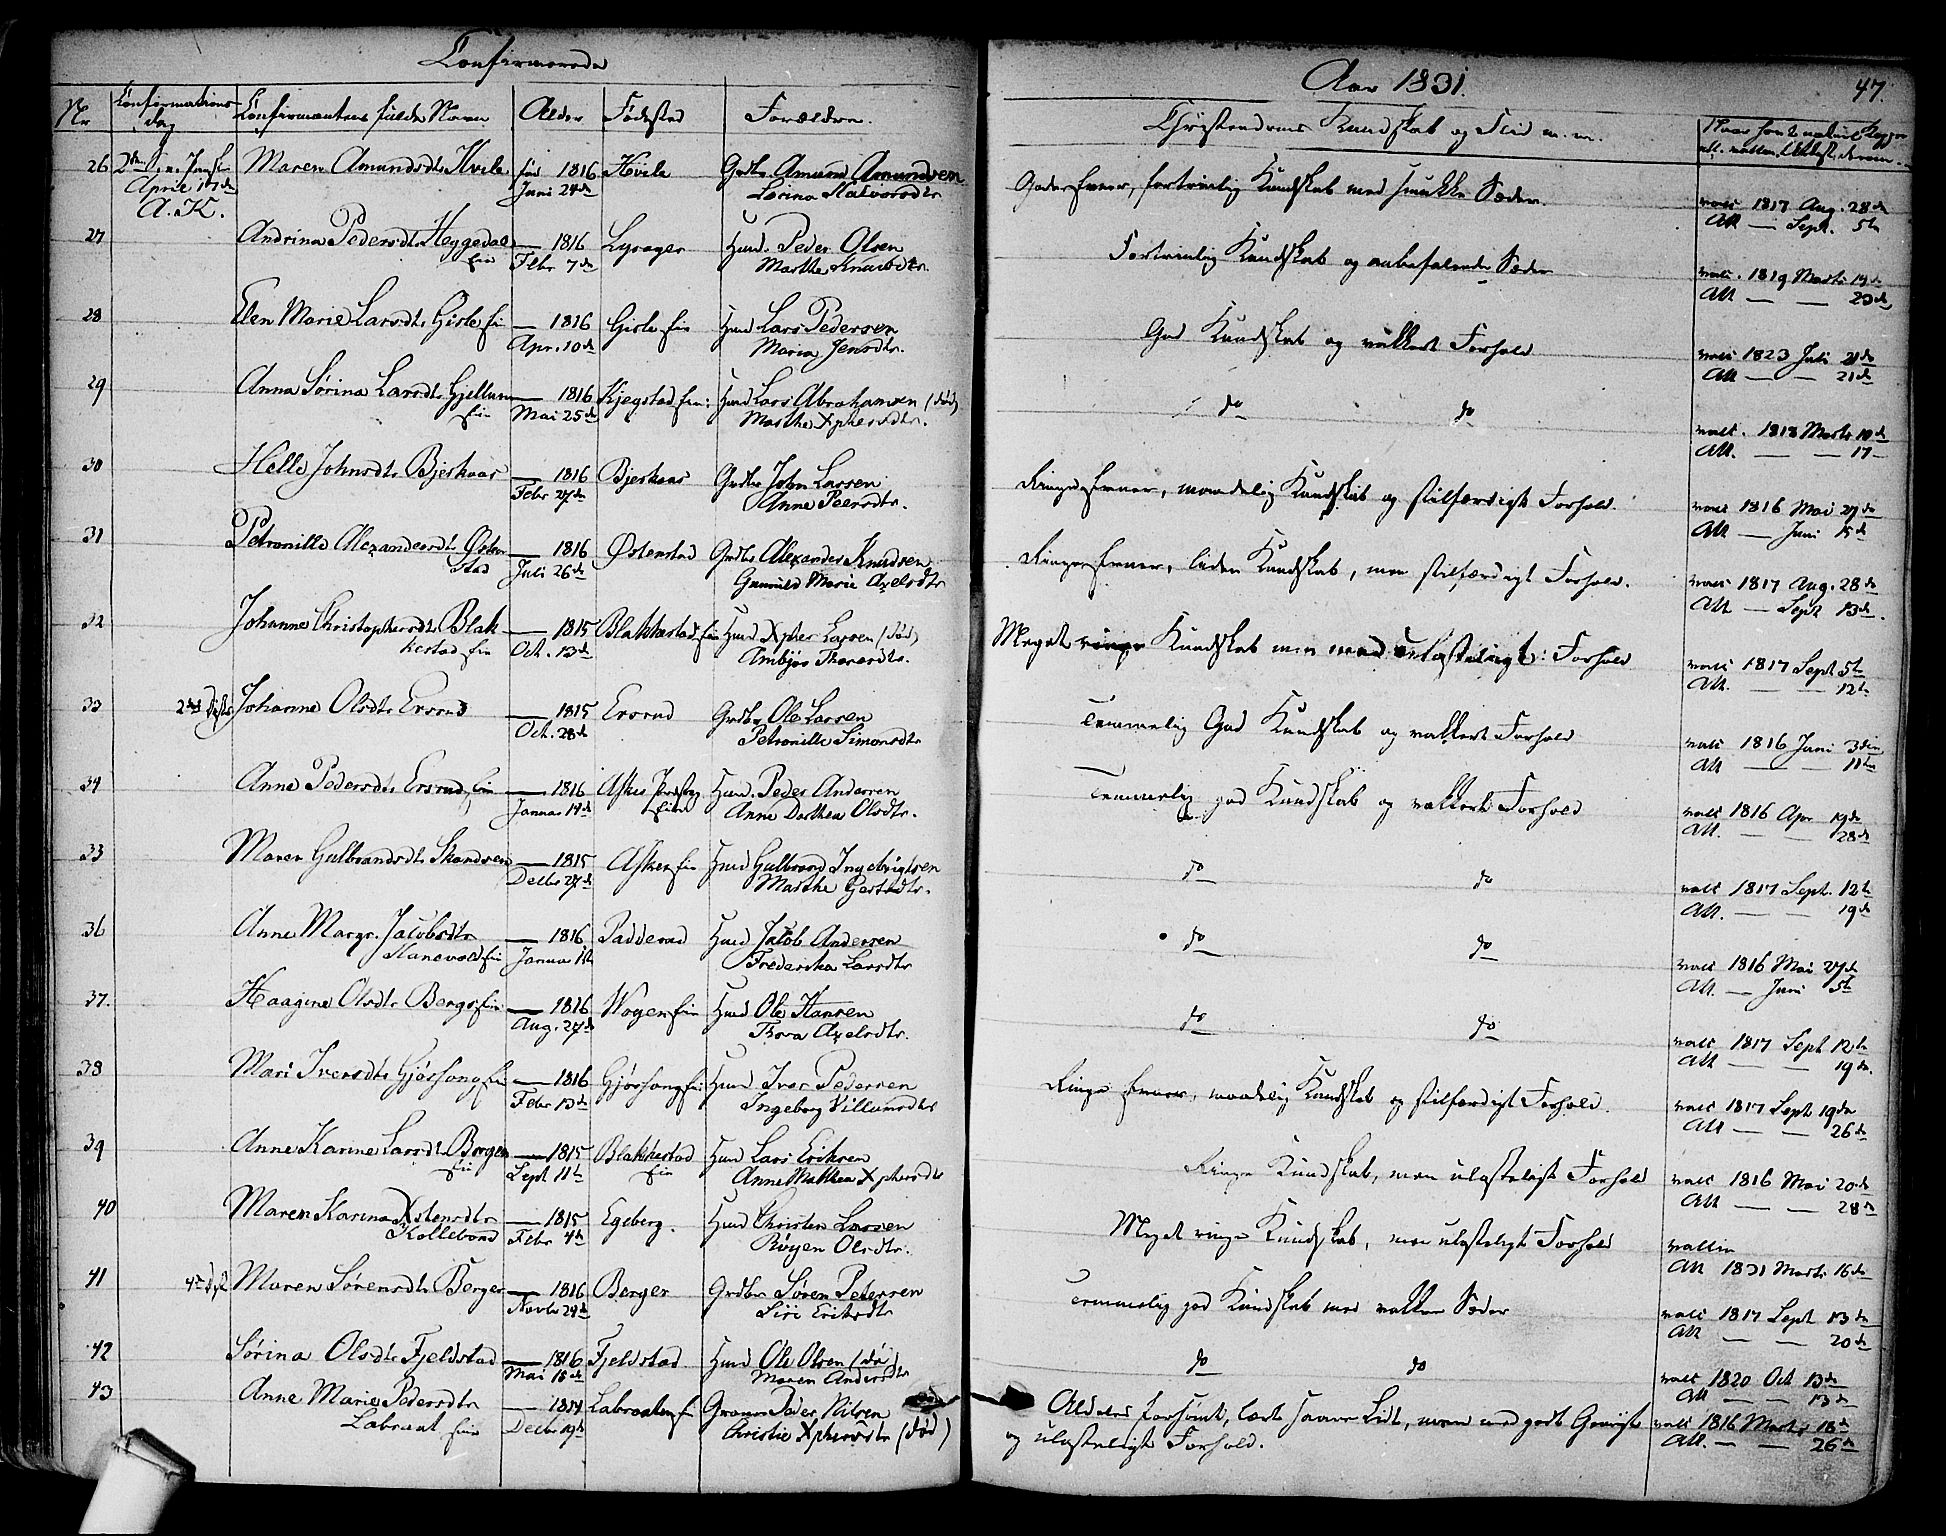 Confirmerede
Aar 1831.
47.
Nr
Confirmations dag
Confirmantens fulde Navn
Alder
Fødested
Forældre.
Christendoms Kundskab og Flid m. m.
26 April 17de A. K. Maren Amundsdtr Hvile fød 1816 Juni 24de Hvile Gdbr Amund Amundsen
Lorina Halvorsdtr
Gode Evner, fortrinlig Kundskab med smukke Sæder. vacc 1817 Aug. 28de
Att — Sept. 5te
27 Andrina Pedersdtr Heggedal — 1816 Febr 7de Lyrager Huusd. Peder Olsen
Marthe Knudsdtr.
Fortrinlig Kundskab og anbefalende Sæder vacc. 1819 Marts
Att — — 20de
28 Elen Marie Larsdtr Gisle ein — 1816 Apr. 10de Gisle ein Huusd Lars Pedersen
Maria Jensdtr.
God Kundskab og vakkert Forhold vacc 1823 Juli 21de
Att — — 21de
29 Anna Sørine Larsdtr Gjellum ein — 1816 Mai 25de Kjegstad ein: Huusd Lars Abrahamsen (død)
Marthe Xphersdtr.
do do vacc. 1818 Marts 10de
Att. — — 17 —
30 Helle Johnsdtr Bjerkaas — 1816 Febr 27de Bjerkaas Grdbr John Larsen
Anne Peersdtr.
Ringe Evner, maadelig Kundskab og stilfærdigt Forhold. vacc 1816 Mai 27de
Att — Juni 15de
31 Petronille Alexandersdtr Østenstad — 1816 Juli 26de Østenstad Grdbr Alexander Knudsen
Gunnild Marie Axelsdtr
Ringe Evner, liden Kundskab, men stilfærdigt Forhold. vacc 1817 Aug. 28de
Att — Sept 13de.
32 Johanne Christophersdtr Blakkestad ein — 1815 Oct. 13de Blakkestad ein Huusd Xpher Larsen (død)
Ambjør Thoresdtr.
Meget ringe Kundskab men med ulasteligt Forhold vacc 1817 Sept 5te
Att. — — 12te
33 Johanne Olsdtr Ersrud — 1815 Oct. 28de Ersrud Grdbr Ole Larsen
Petronille Simonsdtr
Temmelig God Kundskab og vakkert Forhold vacc 1816 Juni 3die
Att — — 11te
34 Anne Pedersdtr Ersrud ein — 1816 Januar 14de Asker Huusd. Peder Andersen
Anne Dorthea Olsdtr.
Temmelig god Kundskab og vakkert Forhold vacc 1816 Apr 19de
Att. — 28de
35 Maren Gulbrandsdtr Skandsen — 1815 Decbr 27de Asker ein Huusd Gulbrand Ingebrigtsen
Marthe Gertsdtr.
do do vacc 1817 Sept. 12te
Att. — — 19de
36 Anne Margr. Jacobsdtr Hanevold ein — 1816 Januar Padderud Huusd Jacob Andersen
Frederika Larsdtr
do do vacc 1816 Mai 27de
Att. — Juni 5te
37. Haagine Olsdtr Berger ein — 1816 Aug. 27de Wogen ein Huusd Ole Hansen
Thora Axelsdtr.
do do vacc 1817 Sept 12te
Att — — 19de
38 Mari Iversdtr Gjørsong ein — 1816 Febr 13de Gjørsong ein Huusd Iver Pedersen
Ingeborg Villumsdtr
Ringe Evner, maadelig Kundskab og stilfærdigt Forhold. vacc 1817 Sept 19de
Att — — 26de
39 Anne Karine Larsdtr Berger ein — 1815 Sept 11te Blakkestad ein Huusd Lars Eriksen
Anne Mathea Xphersdtr
Ringe Kundskab, men ulasteligt Forhold vacc 1816 Mai 20de
Att — — 28de
40 Maren Karina Xstensdtr Kollebond — 1815 Febr 4de Egeberg. Huusd Christen Larsen
Røgen Olsdtr.
Meget ringe Kundskab, men ulasteligt Forhold vaccin
Att 1831 Marts 16de
41 Maren Sørensdtr Berger — 1816 Novbr 29de Berger Grdbr Søren Petersen
Siri Eriksdtr
Temmelig god Kundskab med vakkre Sæder vacc 1817 Sept 13de
Att — — 20de
42 Sørina Olsdtr Fjeldstad — 1816 Mai 18de Fjeldstad Huusd Ole Olsen (død)
Maren Andersdtr
do do vacc 1820 Oct 13de
Att — — 13de
43 Anne Marie Pedersdtr Labraat ein — 1814 Decbr 19de Labraaten ein Peder Nilsen
Christie Xphersdtr (død)
Alders forsømt, lært Lidt, men med godt
og ulasteligt Forhold. vacc 1816 Marts 18de
Att. — — 26de